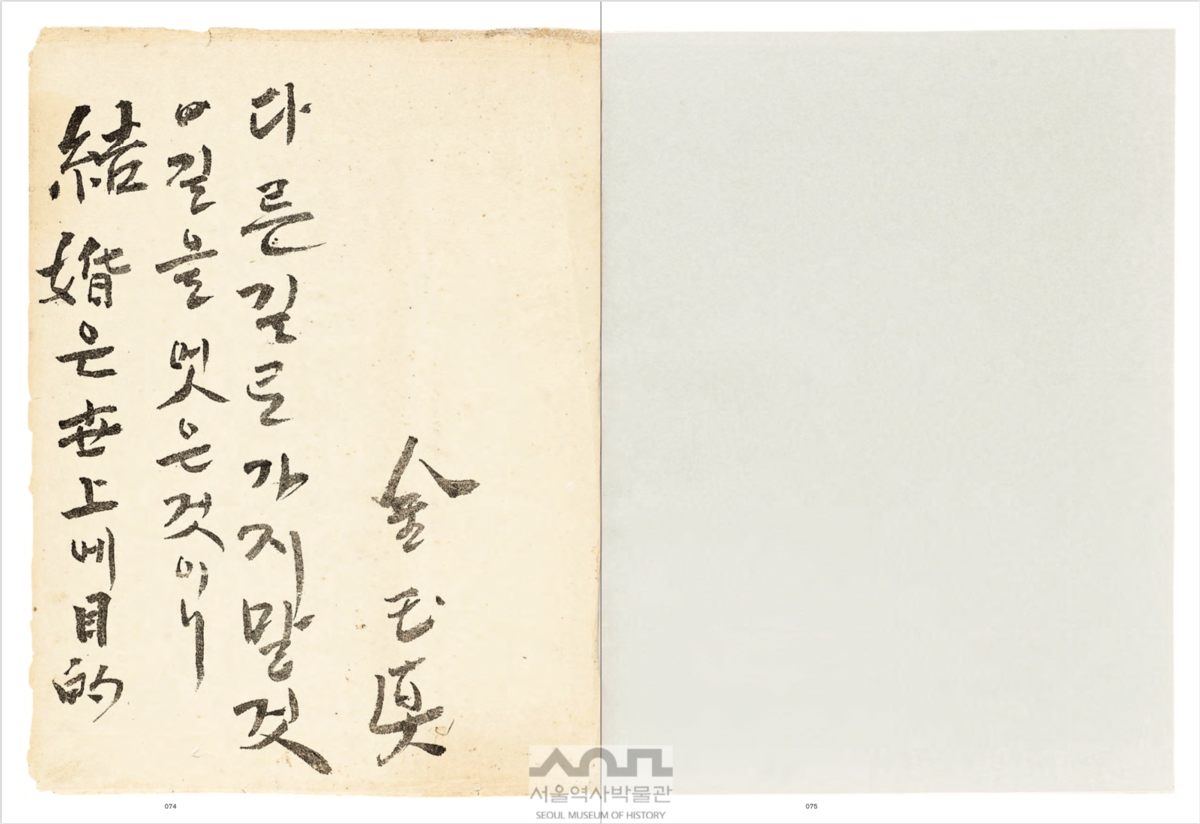 結婚은世上에目的
이길을멋은것이니
다른길로가지말것
金玉眞
074
075
서울역사박물관
SEOUL MUSEUM OF HISTORY